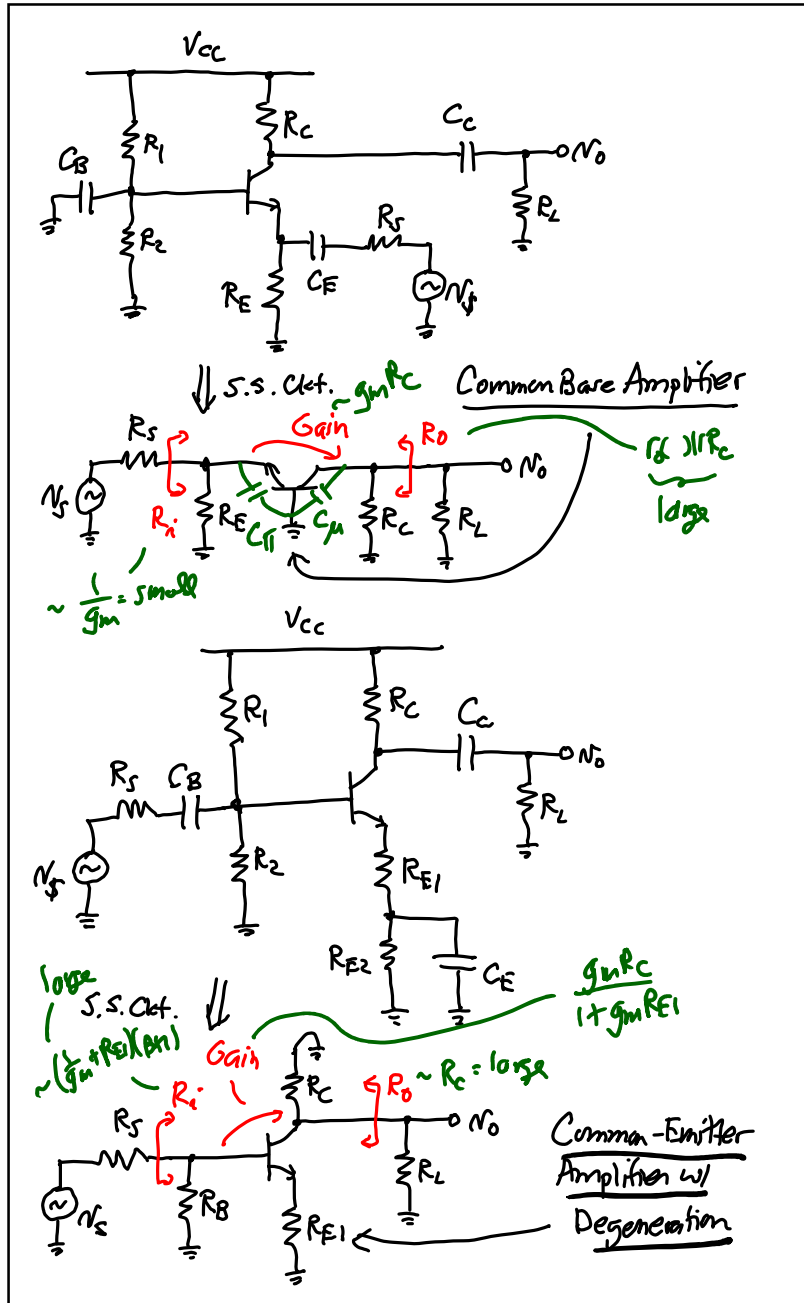 VCC
R1
RC
CC
vo
CB
RL
R2
RS
CE
RE
vs
S.S. Ckt.
~gmRC
Common Base Amplifier
Gain
RS
Ro
vo
vs
Ri
RE
Cπ
Cμ
RC
RL
||RC
large
~ 1/gm = small
VCC
R1
RC
Cc
vo
RS
CB
RL
vs
R2
RE1
RE2
CE
large
S.S. Ckt.
gmRC
1+gmRE1
~(1/gm+RE1)(β+1)
Gain
Ri
RC
Ro
~ Rc = large
RS
vo
Common-Emitter
Amplifier w/
Degeneration
RL
vs
RB
RE1